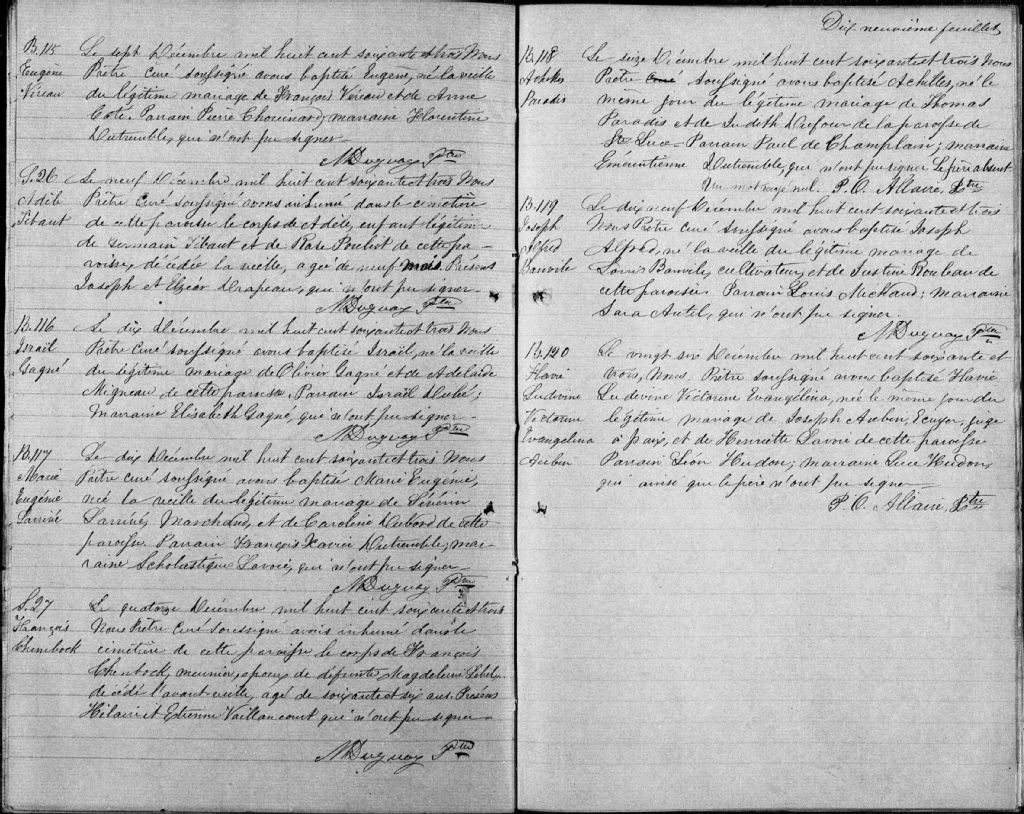 B.115
Eugène
Véreau
Le sept Décembre mil huit cent soixante et trois Nous
Prêtre curé soussigné avons baptisé Eugène, né la veille
du légitime mariage de François Véreau et de Anne
Coté. Parrain Pierre Chouinard; marraine Florentine
Dutremble, qui n'ont pu signer.
N Duguay Ptre
S.26
Adèle
Thibaut
Le neuf Décembre mil huit cent soixante et trois Nous
Prêtre Curé soussigné avons inhumé dans le cimetière
de cette paroisse le corps de Adèle, enfant légitime
de Germain Tibaut et de Rose Pouliot de cette pa-
roisse, décédée la veille, agée de neuf mois. Présens
Joseph et Elzéar Drapeau, qui n'ont pu signer
N Duguay Ptre
B.116
Israël
Gagné
Le dix Décembre mil huit cent soixante et trois Nous
Prêtre curé soussigné avons baptisé Israël, né la veille
du légitime mariage de Olivier Gagné et de Adelaïde
Migneau de cette paroisse. Parrain Israël Dubé;
Marraine Elisabeth Gagné, qui n'ont pu signer
N Duguay Ptre
B.117
Marie
Eugénie
Larrivé
Le dix Décembre mil huit cent soixante et trois Nous
Prêtre curé soussigné avons baptisé Marie Eugénie,
née la veille du légitime mariage de Sévérin
Larrivée, Marchand, et de Caroline Dubord de cette
paroisse. Parrain François Xavier Dutremble; mar-
raine Scholastique Lavoie, qui n'ont pu signer
N Duguay Ptre
S.27
François
Chenbock
Le quatorze Décembre mil huit cent soixante et trois
Nous Prêtre curé soussigné avons inhumé dans le
cimetière de cette paroisse le corps de François
Chenbock, meunier, epoux de défunte Magdeleine Lebel
décédé l'avant veille, agé de soixante et six ans. Présens
Hilaire et Etienne Vaillancourt qui n'ont pu signer
N Duguay Ptre
Dix neuvième feuillet
B.118
Achilles
Paradis
Le seize Décembre mil huit cent soixante et trois Nous
Prêtre curé soussigné avons baptisé Achilles, né le
même jour du légitime mariage de Thomas
Paradis et de Judith Dufour de la paroisse de
Ste Luce. Parrain Paul de Champlain; marraine
Emerentienne Dutremble, qui n'ont pu signer. Le père absent.
Un mot rayé nul. P. O. Allaire, Ptre
B.119
Joseph
Alfred
Banville
Le dix neuf Décembre mil huit cent soixante et trois
Nous Prêtre curé soussigné avons baptisé Joseph
Alfred, né la veille du légitime mariage de
Louis Banville, cultivateur, et de Justine Rouleau de
cette paroisse. Parrain Louis Michaud; marraine
Sara Autel, qui n'ont pu signer.
N Duguay Ptre
B.120
Flavie
Ludevine
Victorine
Evangelina
Aubin
Le vingt six Décembre mil huit cent soixante et
trois, Nous Prêtre soussigné avons baptisé Flavie
Ludevine Victorine Evangelina, née le même jour du
légitime mariage de Joseph Aubin, Ecuyer, juge
à paix, et de Henriette Lavoie de cette paroisse
Parrain Léon Hudon; marraine Luce Hudon,
qui ainsi que le père n'ont pu signer
P. O. Allaire, Ptre